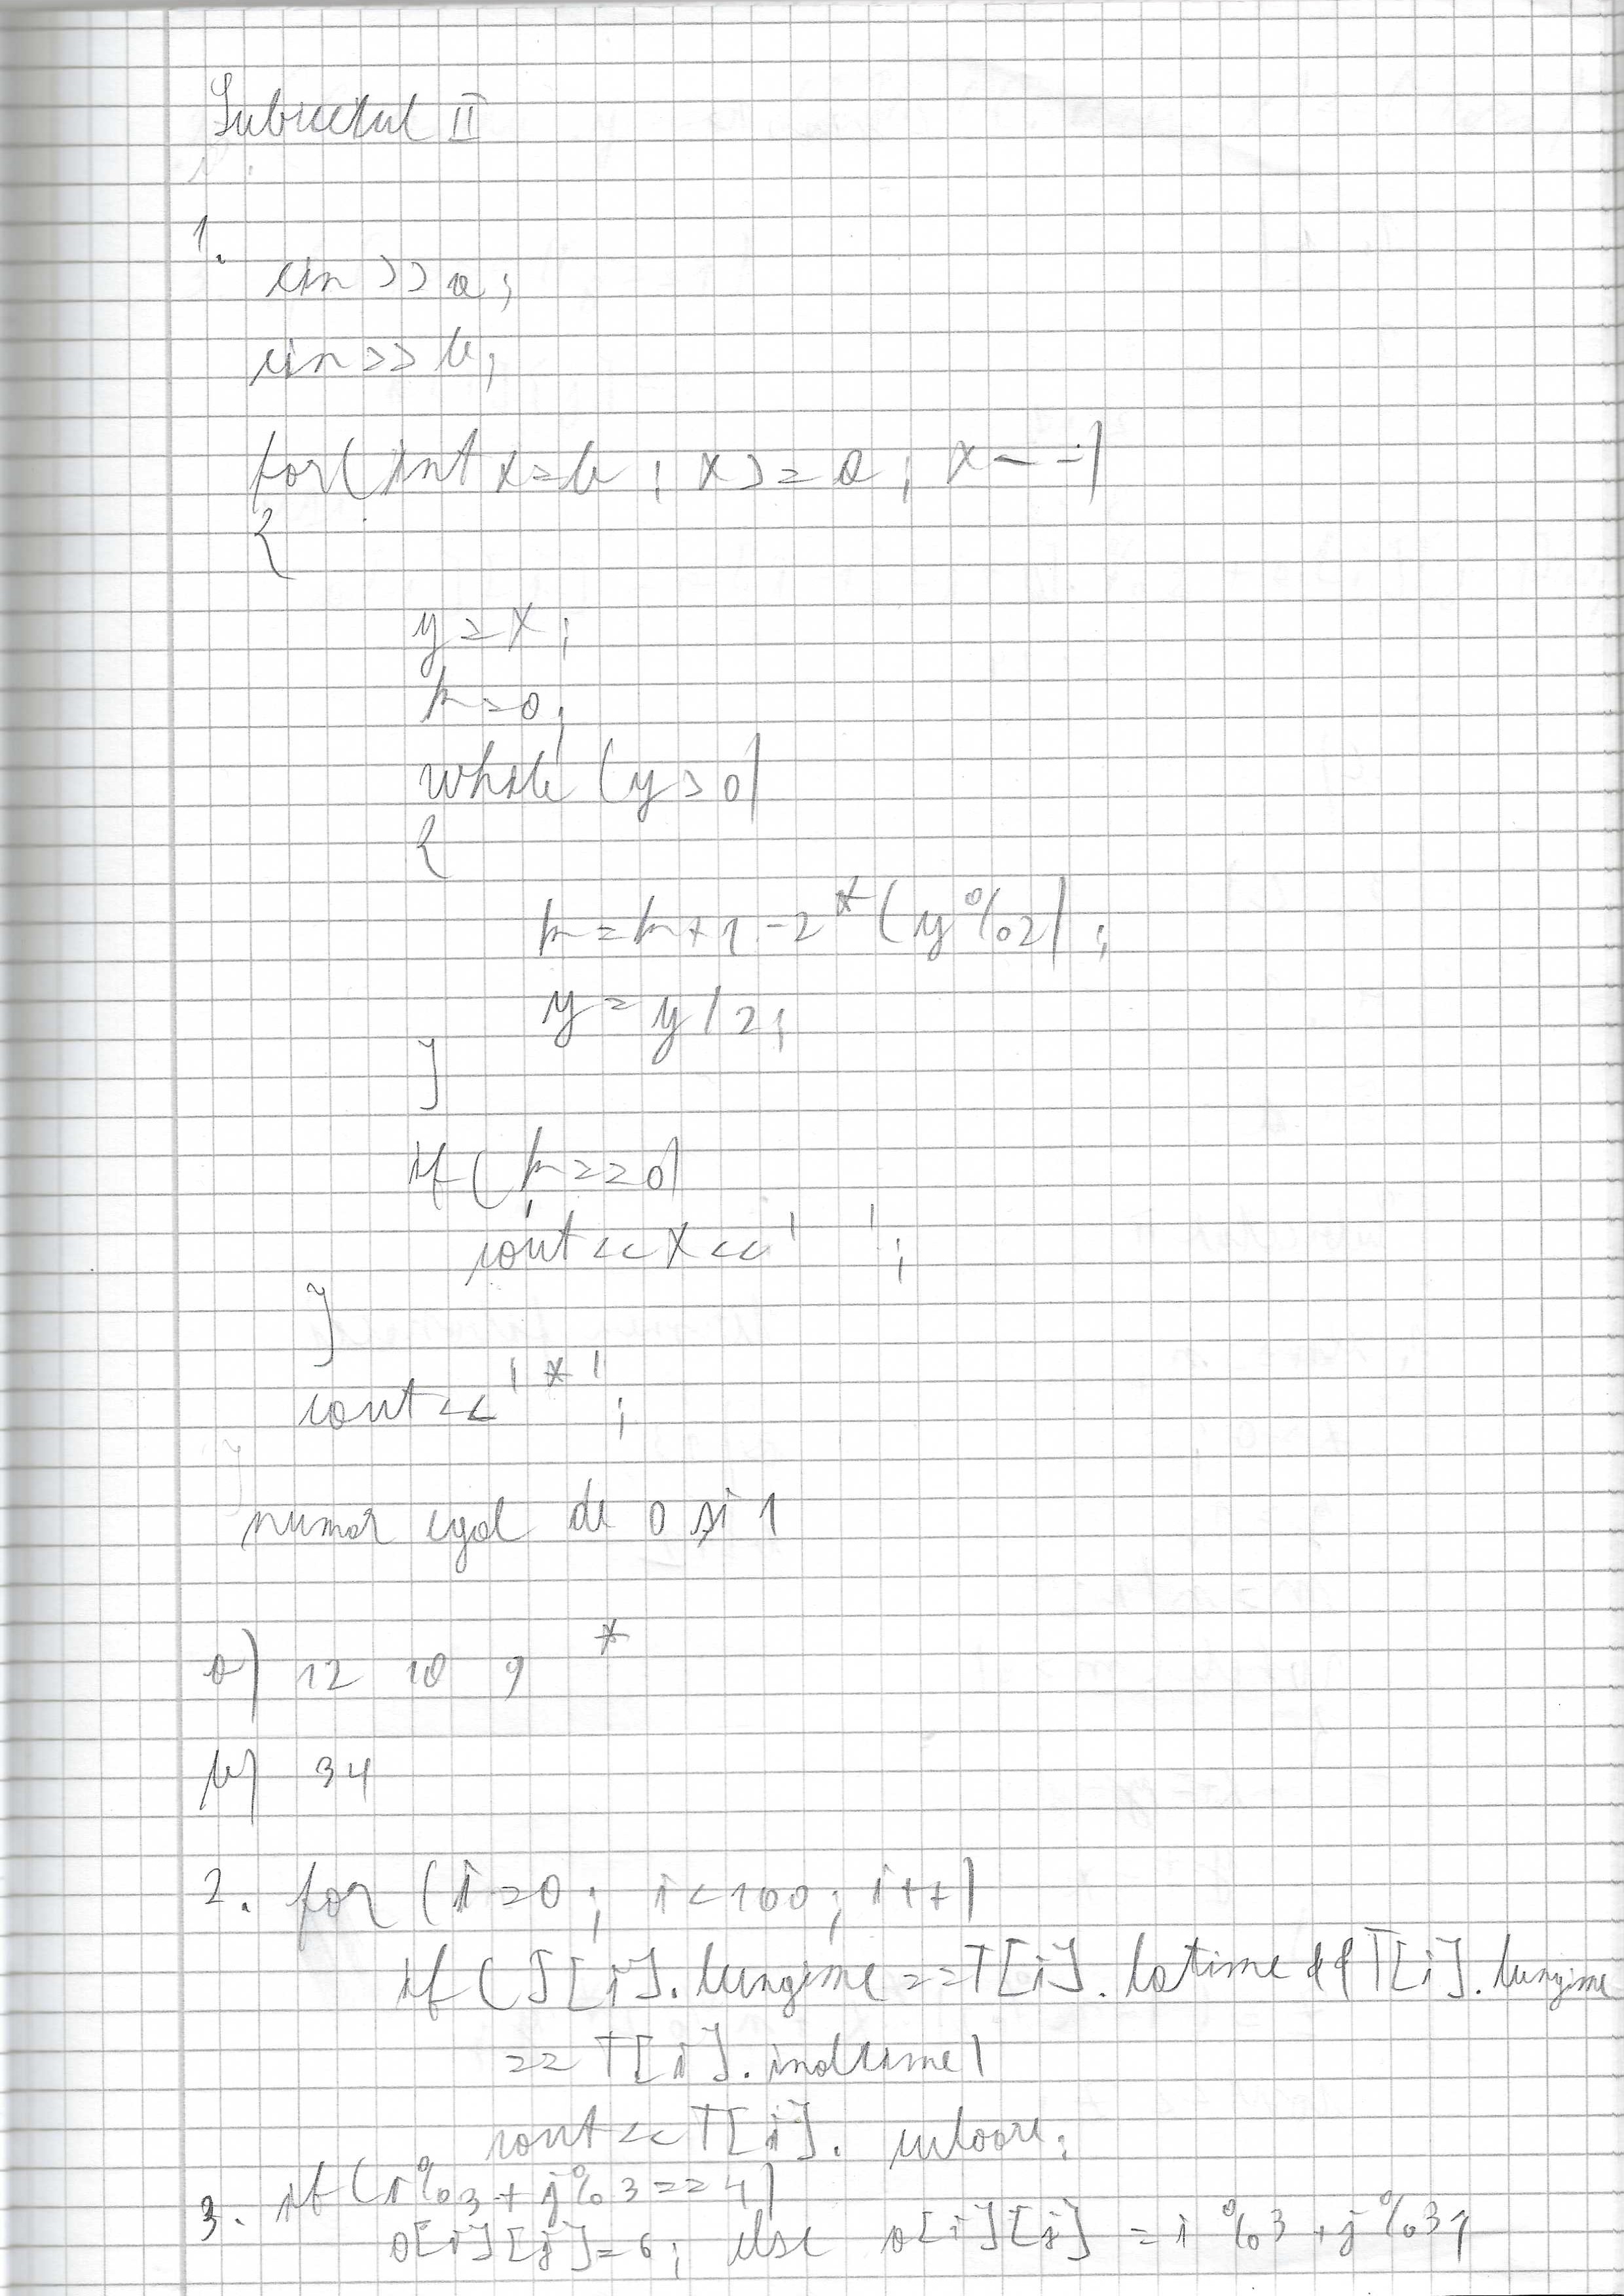 Subiectul II
1.
cin >> a;
cin >> b;
for(int x=b; x>=a; x--)
{
y=x;
k=0;
while (y>0)
{
k=k+1-2*(y%2);
y=y/2;
}
if(k==0)
cout<<x<<' ';
}
cout<<'*';
numar egal de 0 si 1
a) 12 10 9 *
b) 34
2. for (i=0; i<100; i++)
if (T[i].lungime==T[i].latime && T[i].lungime
==T[i].inaltime)
cout<<T[i].culoare;
3. if(i%3+j%3==4)
a[i][j]=6; else a[i][j]=i%3+j%3;